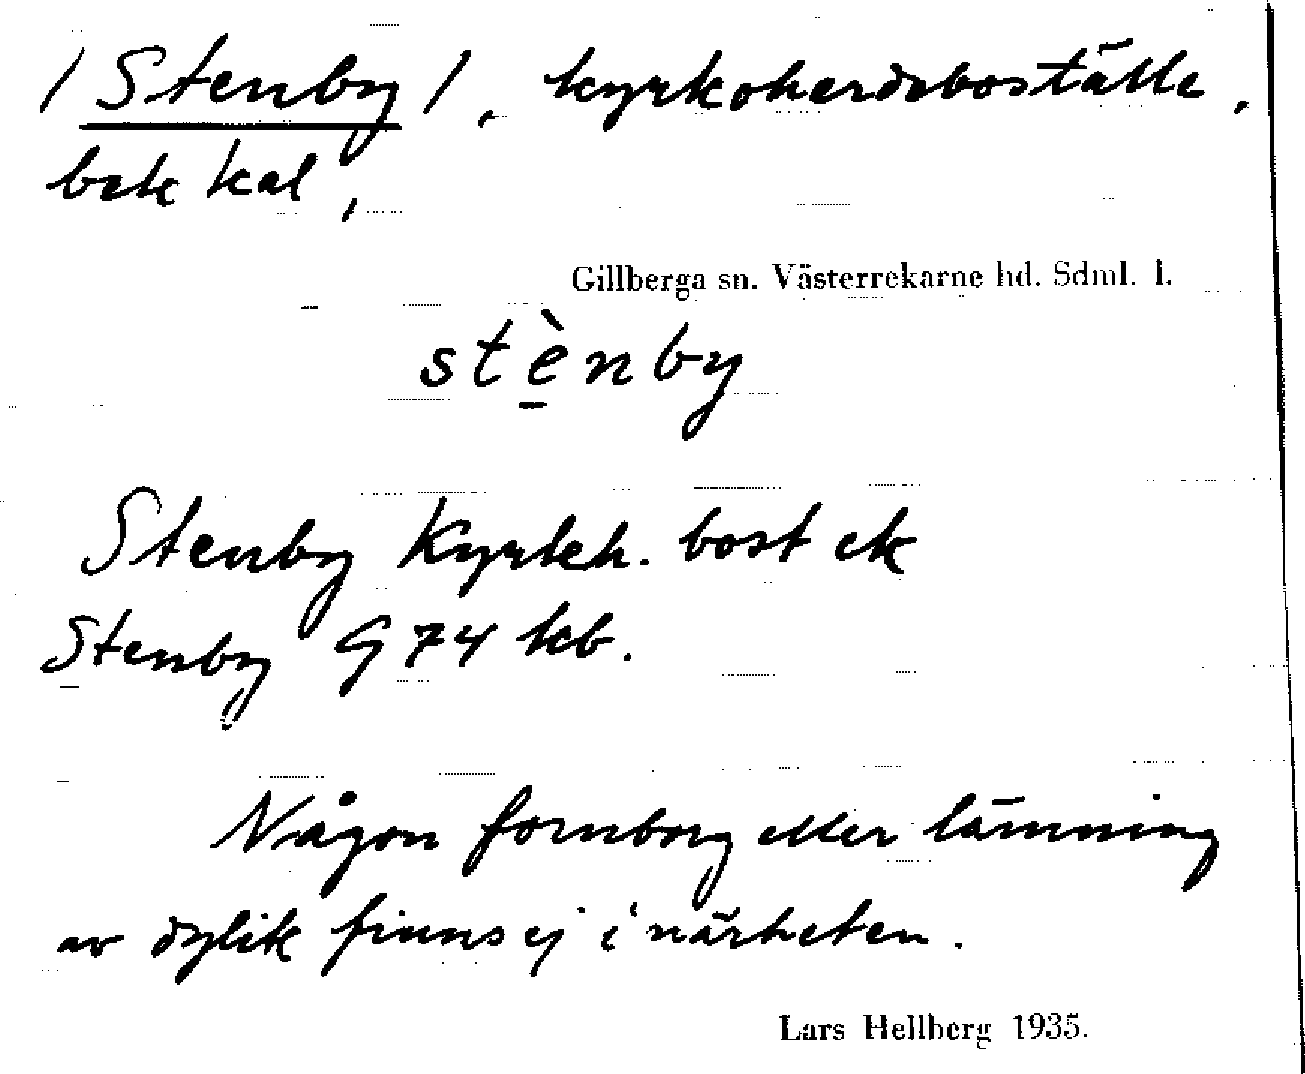 / Stenby /, kyrkoherdeboställe,
bak kal,
Gillberga sn. Västerrekarne hd. Sdml. l.
stè̱nby
Stenby Kyrkh. bost ek
Stenby G 74 kb.
Någon fornborg eller lämning
av dylik finns ej i närheten.
Lars Hellberg 1935.